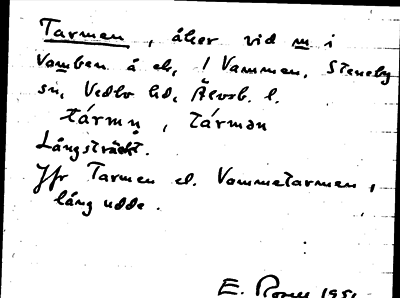 Tarmen, åker vid m i
Vomben å ek, / Vammen, Steneby
sn, Vedbo hd, Älvsb. l.
tármn̥, tármən
Långsträckt.
Jfr Tarmen el. Vammetarmen,
lång udde.
E. 195